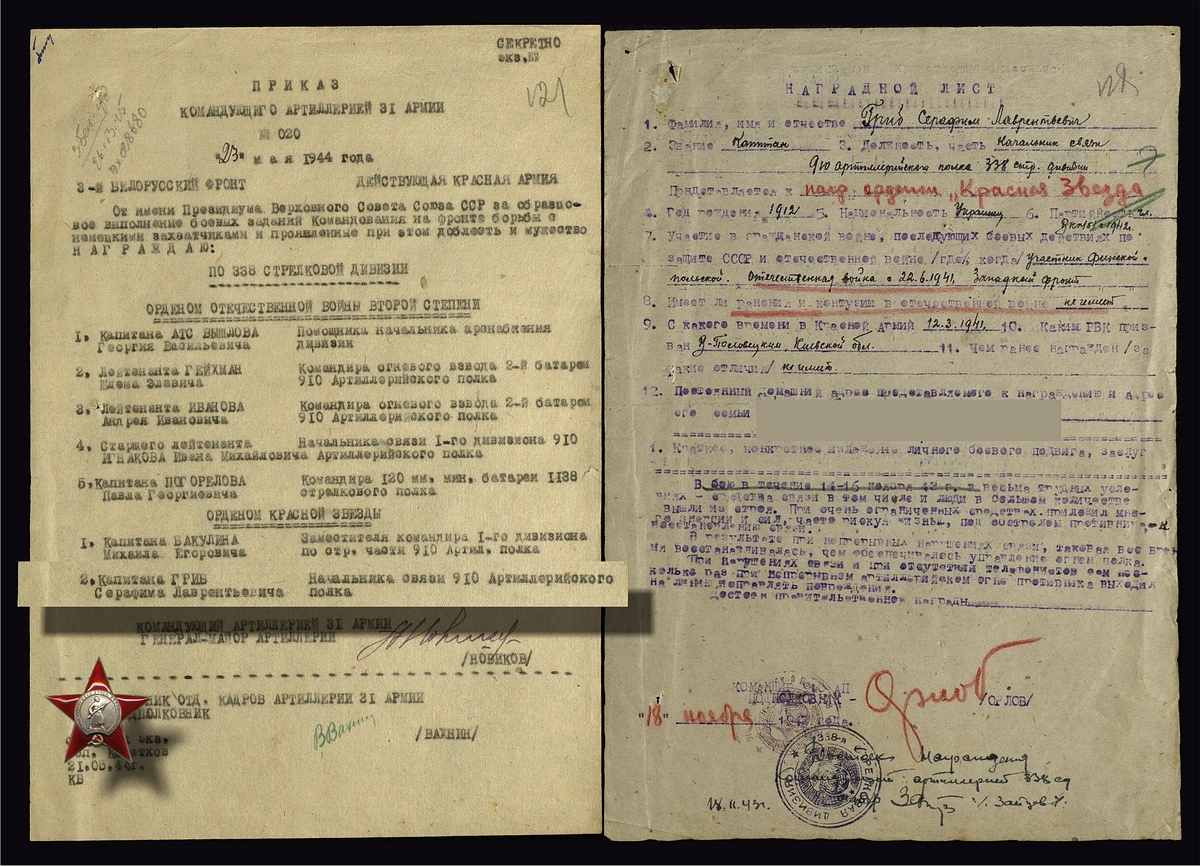 СЕКРЕТНО
экз.№
ПРИКАЗ
КОМАНДУЮЩЕГО АРТИЛЛЕРИЕЙ 31 АРМИИ
№ 020
"23" мая 1944 года
3-й БЕЛОРУССКИЙ ФРОНТ ДЕЙСТВУЮЩАЯ КРАСНАЯ АРМИЯ
От имени Президиума Верховного Совета Союза ССР за образцо-
вое выполнение боевых заданий Командования на фронте борьбы с
немецкими захватчиками и проявленные при этом доблесть и мужество
НАГРАЖДАЮ:
ПО 338 СТРЕЛКОВОЙ ДИВИЗИИ
ОРДЕНОМ ОТЕЧЕСТВЕННОЙ ВОЙНЫ ВТОРОЙ СТЕПЕНИ
1. Капитана АТС ВЫШЛОВА Помощника начальника артснабжения
Георгия Васильевича дивизии
2. Лейтенанта ГЕЙХМАН Командира огневого взвода 2-й батареи
Шлема Элевича 910 Артиллерийского полка
3. Лейтенанта ИВАНОВА Командира огневого взвода 2-й батареи
Андрея Ивановича 910 Артиллерийского полка
4. Старшего лейтенанта Начальника связи 1-го дивизиона 910
ИГНАКОВА Ивана Михайловича Артиллерийского полка
5. Капитана ПОГОРЕЛОВА Командира 120 мм. мин. батареи 1138
Павла Георгиевича стрелкового полка
ОРДЕНОМ КРАСНОЙ ЗВЕЗДЫ
1. Капитана БАКУЛИНА Заместителя командира 1-го дивизиона
Михаила Егоровича по стр. части 910 Артил. полка
2. Капитана ГРИБ Начальника связи 910 Артиллерийского
Серафима Лаврентьевича полка
КОМАНДУЮЩИЙ АРТИЛЛЕРИЕЙ 31 АРМИИ
ГЕНЕРАЛ-МАЙОР АРТИЛЛЕРИИ
/НОВИКОВ/
НИК ОТД. КАДРОВ АРТИЛЛЕРИИ 31 АРМИИ
ДПОЛКОВНИК
/ВАХНИН/
экз.
21.05.44г.
КВ
НАГРАДНОЙ ЛИСТ
1. Фамилия, имя и отчество Гриб Серафим Лаврентьевич
2. Звание Капитан 3. Должность, часть Начальник связи
910 артиллерийского полка 338 стр. дивизии
Представляется к нагр. орденом "Красная Звезда"
4. Год рождения 1912 5. Национальность Украинец 6. Партийность чл.
7. Участие в гражданской войне, последующих боевых действиях по
защите СССР и отечественной войне /где, когда/ участник Финской и
польской. Отечественная война с 22.6.1941. Западный фронт
8. Имеет ли ранения и контузии в отечественной войне не имеет
9. С какого времени в Красной Армии 12.3.1941. 10. Каким РВК приз-
ван Киевской обл. 11. Чем ранее награжден /за
какие отличия/ не имеет.
12. Постоянный домашний адрес представляемого к награждению и адрес
его семьи
1. Краткое, конкретное изложение личного боевого подвига, заслуг
В бою в течение 14-16 ноября 43 г. в весьма трудных усло-
виях - средства связи в том числе и люди в большом количестве
вышли из строя. При очень ограниченных средствах приложил мно-
го энергии и сил, часто рискуя жизнью, под обстрелом противника к
восстановлению связи.
В результате при непрерывных нарушениях связи, таковая все вре-
мя восстанавливалась, чем обеспечивалось управление огнем полка.
При нарушениях связи и при отсутствии телефонистов сам нес-
колько раз при непрерывном артиллерийском огне противника выходил
на линию исправлять повреждения.
Достоин правительственной награды
КОМАНДИР 910 АП
ПОДПОЛКОВНИК - /ОРЛОВ/
"18" ноября 1943 года.
338-я СТРЕЛКОВАЯ ДИВИЗИЯ
Достоин награждения
артиллерией 338 сд
18.11.43г. /Зайцев/